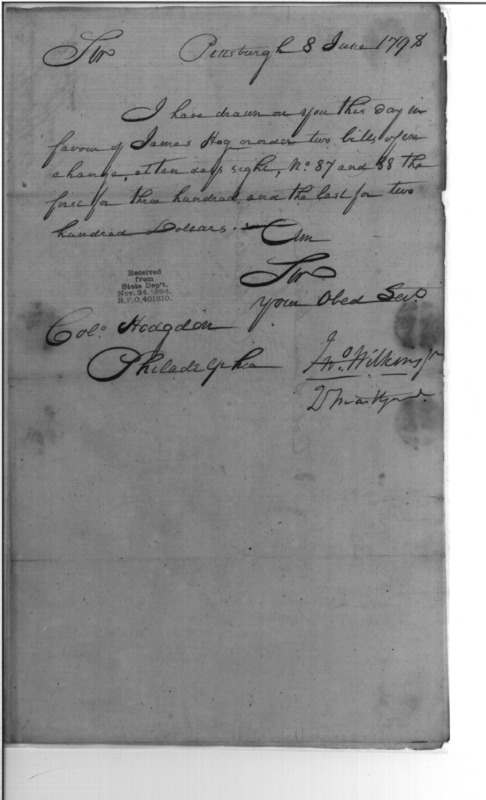 Sir Pittsburgh 8 June 1798
I have drawn on you this day in
favour of James Hog or order two bills of ex
change, at ten days sight, No. 87 and 88 the
first for three hundred, and the last for two
hundred Dollars. Am
Sir
your Obed Serv
Received
from
State Dep't.
Nov. 24, 1894.
R.P.O, 401810.
Colo. Hodgdon
Philadelphia
Jno. Wilkins Jr